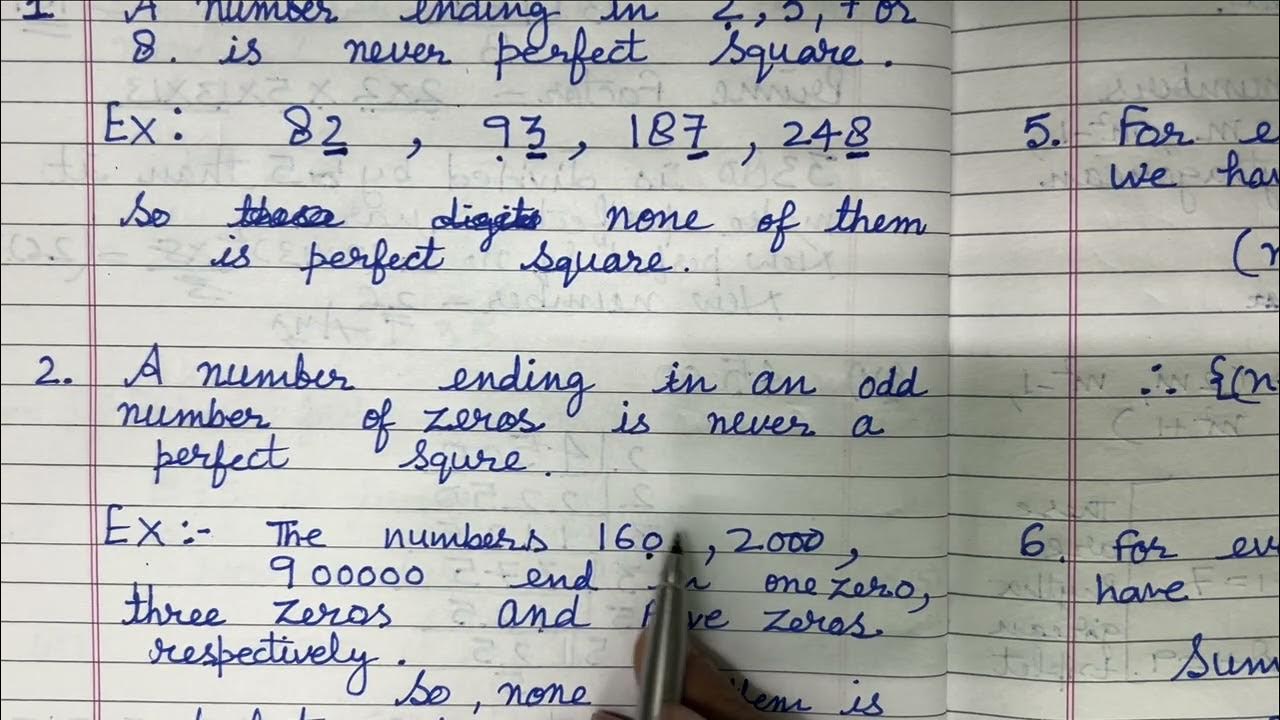 1 A number ending in 2, 3, 7 or
8. is never perfect square.
Ex: 82, 93, 187, 248
So none of them
is perfect square.
2. A number ending in an odd
number of zeros is never a
perfect squre.
Ex:- The numbers 160, 2000,
900000 end one zero,
three zeros and five zeros
respectively.
So, none is
5. For e
we ha
(n
∴ {(n
6. For ev
have
Sum